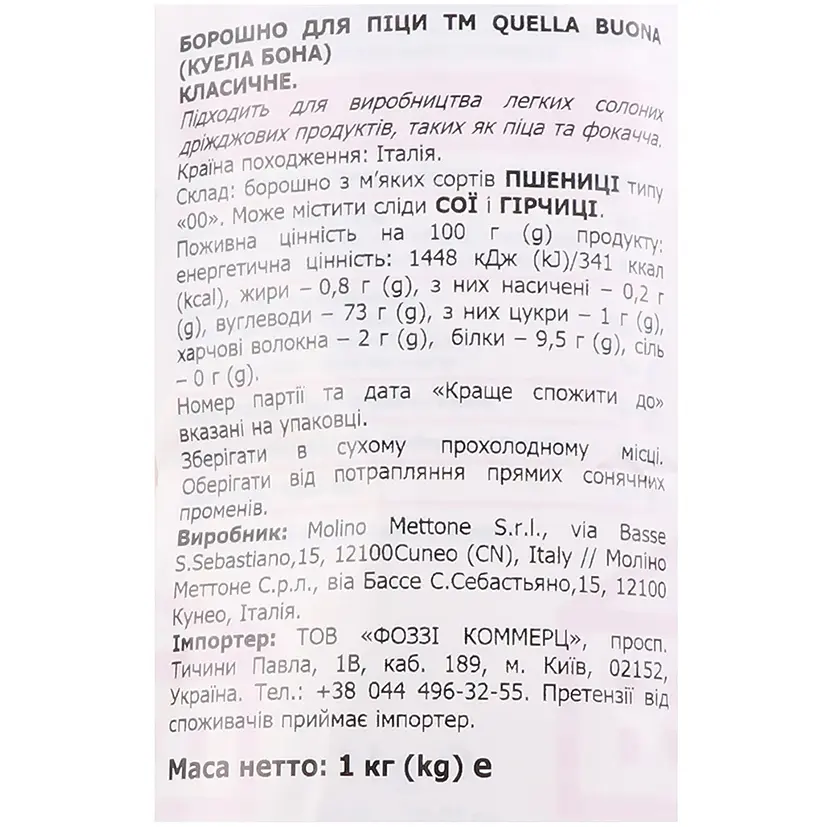 БОРОШНО ДЛЯ ПІЦИ ТМ QUELLA BUONA
(КУЕЛА БОНА)
КЛАСИЧНЕ.
Підходить для виробництва легких солоних
дріжджових продуктів, таких як піца та фокачча.
Країна походження: Італія.
Склад: борошно з м’яких сортів ПШЕНИЦІ типу
«00». Може містити сліди СОЇ і ГІРЧИЦІ.
Поживна цінність на 100 г (g) продукту:
енергетична цінність: 1448 кДж (kJ)/341 ккал
(kcal), жири – 0,8 г (g), з них насичені – 0,2 г
(g), вуглеводи – 73 г (g), з них цукри – 1 г (g),
харчові волокна – 2 г (g), білки – 9,5 г (g), сіль
– 0 г (g).
Номер партії та дата «Краще спожити до»
вказані на упаковці.
Зберігати в сухому прохолодному місці.
Оберігати від потрапляння прямих сонячних
променів.
Виробник: Molino Mettone S.r.l., via Basse
S.Sebastiano,15, 12100Cuneo (CN), Italy // Моліно
Меттоне С.р.л., віа Бассе С.Себастьяно,15, 12100
Кунео, Італія.
Імпортер: ТОВ «ФОЗЗІ КОММЕРЦ», просп.
Тичини Павла, 1В, каб. 189, м. Київ, 02152,
Україна. Тел.: +38 044 496-32-55. Претензії від
споживачів приймає імпортер.
Маса нетто: 1 кг (kg) e